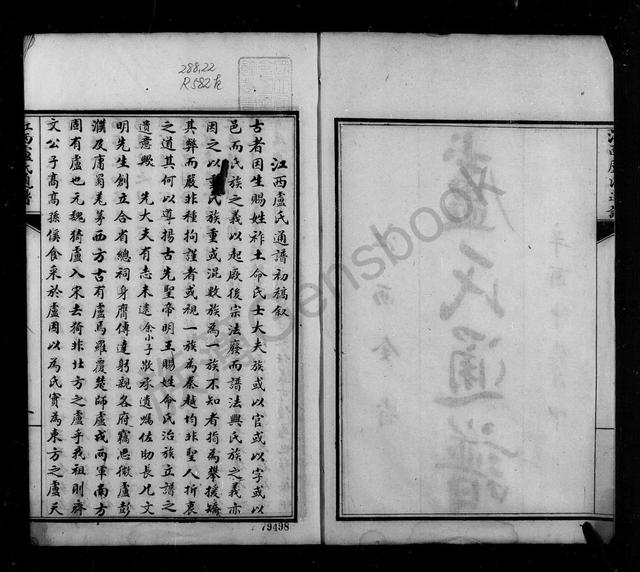 288.22
R582
江西盧氏通譜初稿叙
古者因生賜姓祚土命氏士大夫族或以官或以字或以
邑而氏族之義以起厥後宗法廢而譜法興氏族之義亦
因之以重氏族重或混數族為一族不知者指為攀援矯
其弊而嚴非種拘謹者或視一族為秦越均非聖人折衷
之道其何以尊揚古先聖帝明王賜姓命氏治族立譜之
遺意歟 先大夫有志未逮余小子敬承遺囑佐助長兄文
明先生創立合省總祠身膺傳達躬親各府竊思微盧彭
濮及庸蜀羗茅西方古有盧焉羅覆楚師盧戎兩軍南方
固有盧也元魏猗盧入宋去猗非北方之盧乎我祖則齊
文公子高高孫傒食采於盧因以為氏實為東方之盧天
79498
盧氏通譜